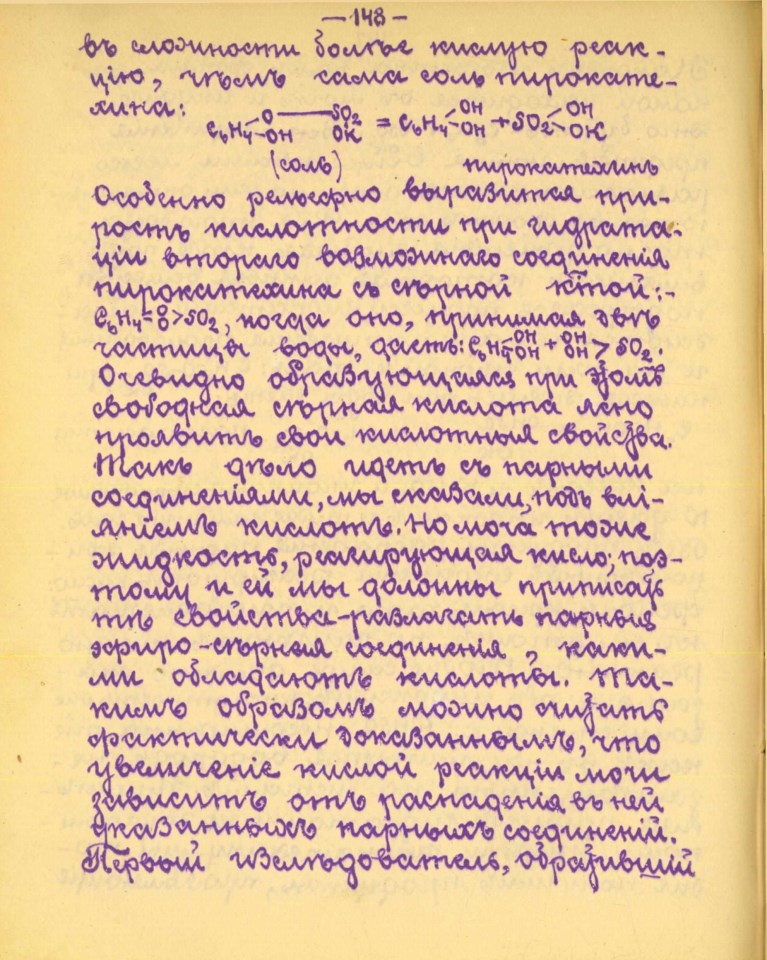 — 148 —
въ сложности болѣе кислую реак-
цію, чѣмъ сама соль пирокате-
хина:
C6H4 < O — SO2 / OH OK = C6H4 < OH / OH + SO2 < OH / OK
(соль) пирокатехинъ
Особенно рельефно выразится при-
ростъ кислотности при гидрата-
ціи второго возможнаго соединенія
пирокатехина съ сѣрной к᾽той:-
C6H4 = O / O > SO2, когда оно, принимая двѣ
частицы воды, дастъ: C6H4 < OH / OH + OH / OH > SO2.
Очевидно образующаяся при этомъ
свободная сѣрная кислота ясно
проявитъ свои кислотныя свойства.
Такъ дѣло идетъ съ парными
соединеніями, мы сказали, подъ влі-
яніемъ кислотъ. Но моча тоже
жидкость, реагирующая кисло; поэ-
тому и ей мы должны приписать
тѣ свойства - разлагать парныя
эфиро-сѣрныя соединенія, каки-
ми обладаютъ кислоты. Та-
кимъ образомъ можно считать
фактически доказаннымъ, что
увеличеніе кислой реакціи мочи
зависитъ отъ распаденія въ ней
указанныхъ парныхъ соединеній.
Первый изслѣдователь, обратившій